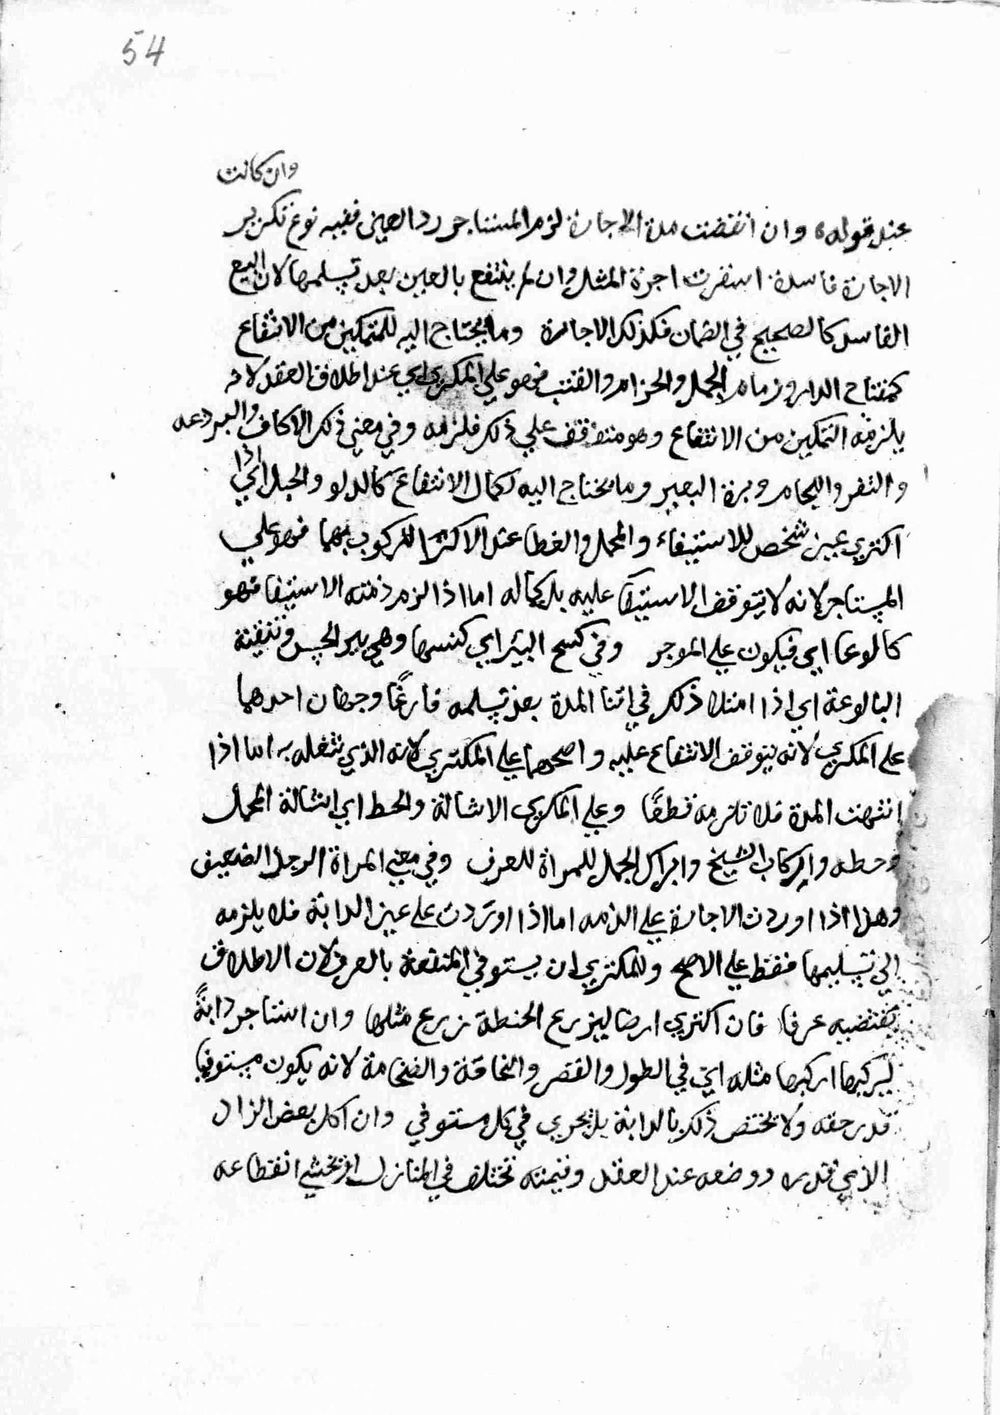 54
وان كانت
عند قوله وان انقضت مدة الاجارة لزم المستاجر رد العين ففيه نوع تكرير
الاجارة فاسدة استقرت اجرة المثل وان لم ينتفع بالعين بعد تسلمها لان البيع
الفاسد كالصحيح في الضمان فكذلك الاجارة وما يحتاج اليه للتمكين من الانتفاع
كمفتاح الدار وزمام الجمل والحزام والقتب فهو على المكري اي عند اطلاق العقد لانه
يلزمه التمكين من الانتفاع وهو متوقف علي ذلك فلزمه وفي معنى ذلك الاكاف والبردعه
والثفر واللجام وبرة البعير وما يحتاج اليه لكمال الانتفاع كالدلو والحبل اي اذا
اكتري عين شخص للاستيفاء والمحمل والغطا عند الاكترا للركوب بهما فهو علي
المستاجر لانه لا يتوقف الاستيفا عليه بل كماله اما اذا لزم ذمته الاستيفا فهو
كالوعا اي فيكون علي الموجر وفي كسح البئر اي كنسها وهي بير الحش وتنقية
البالوعة اي اذا امتلا ذلك في اثنا المدة بعد تسلمه فارغًا وجهان احدهما
علي المكري لانه يتوقف الانتفاع عليه واصحهما علي المكتري لانه الذي شغله به اما اذا
انتهت المدة فلا تلزمه قطعًا وعلي المكري الاشالة والحط اي اشالة المحمل
وحطه واركاب الشيخ وابراك الجمل للمراة للعرف وفي معني المراة الرجل الضعيف
وهذا اذا اوردت الاجارة علي الذمه اما اذا اوردت علي عين الدابة فلا يلزمه
الي تسليمها فقط علي الاصح وللمكتري ان يستوفي المنفعة بالعرف لان الاطلاق
يقتضيه عرفا فان اكتري ارضا ليزرع الحنطة زرع مثلها وان استاجر دابةً
ليركبها اركبها مثله اي في الطول والقصر والنحافة والضخامة لانه يكون مستوفيا
قدر حقه ولا يختص ذلك بالدابة بل يجري في كل مستوفي وان اكل بعض الزاد
الذي قدره ووضعه عند العقد وقيمته تختلف في المنازل او خشي انقطاعه